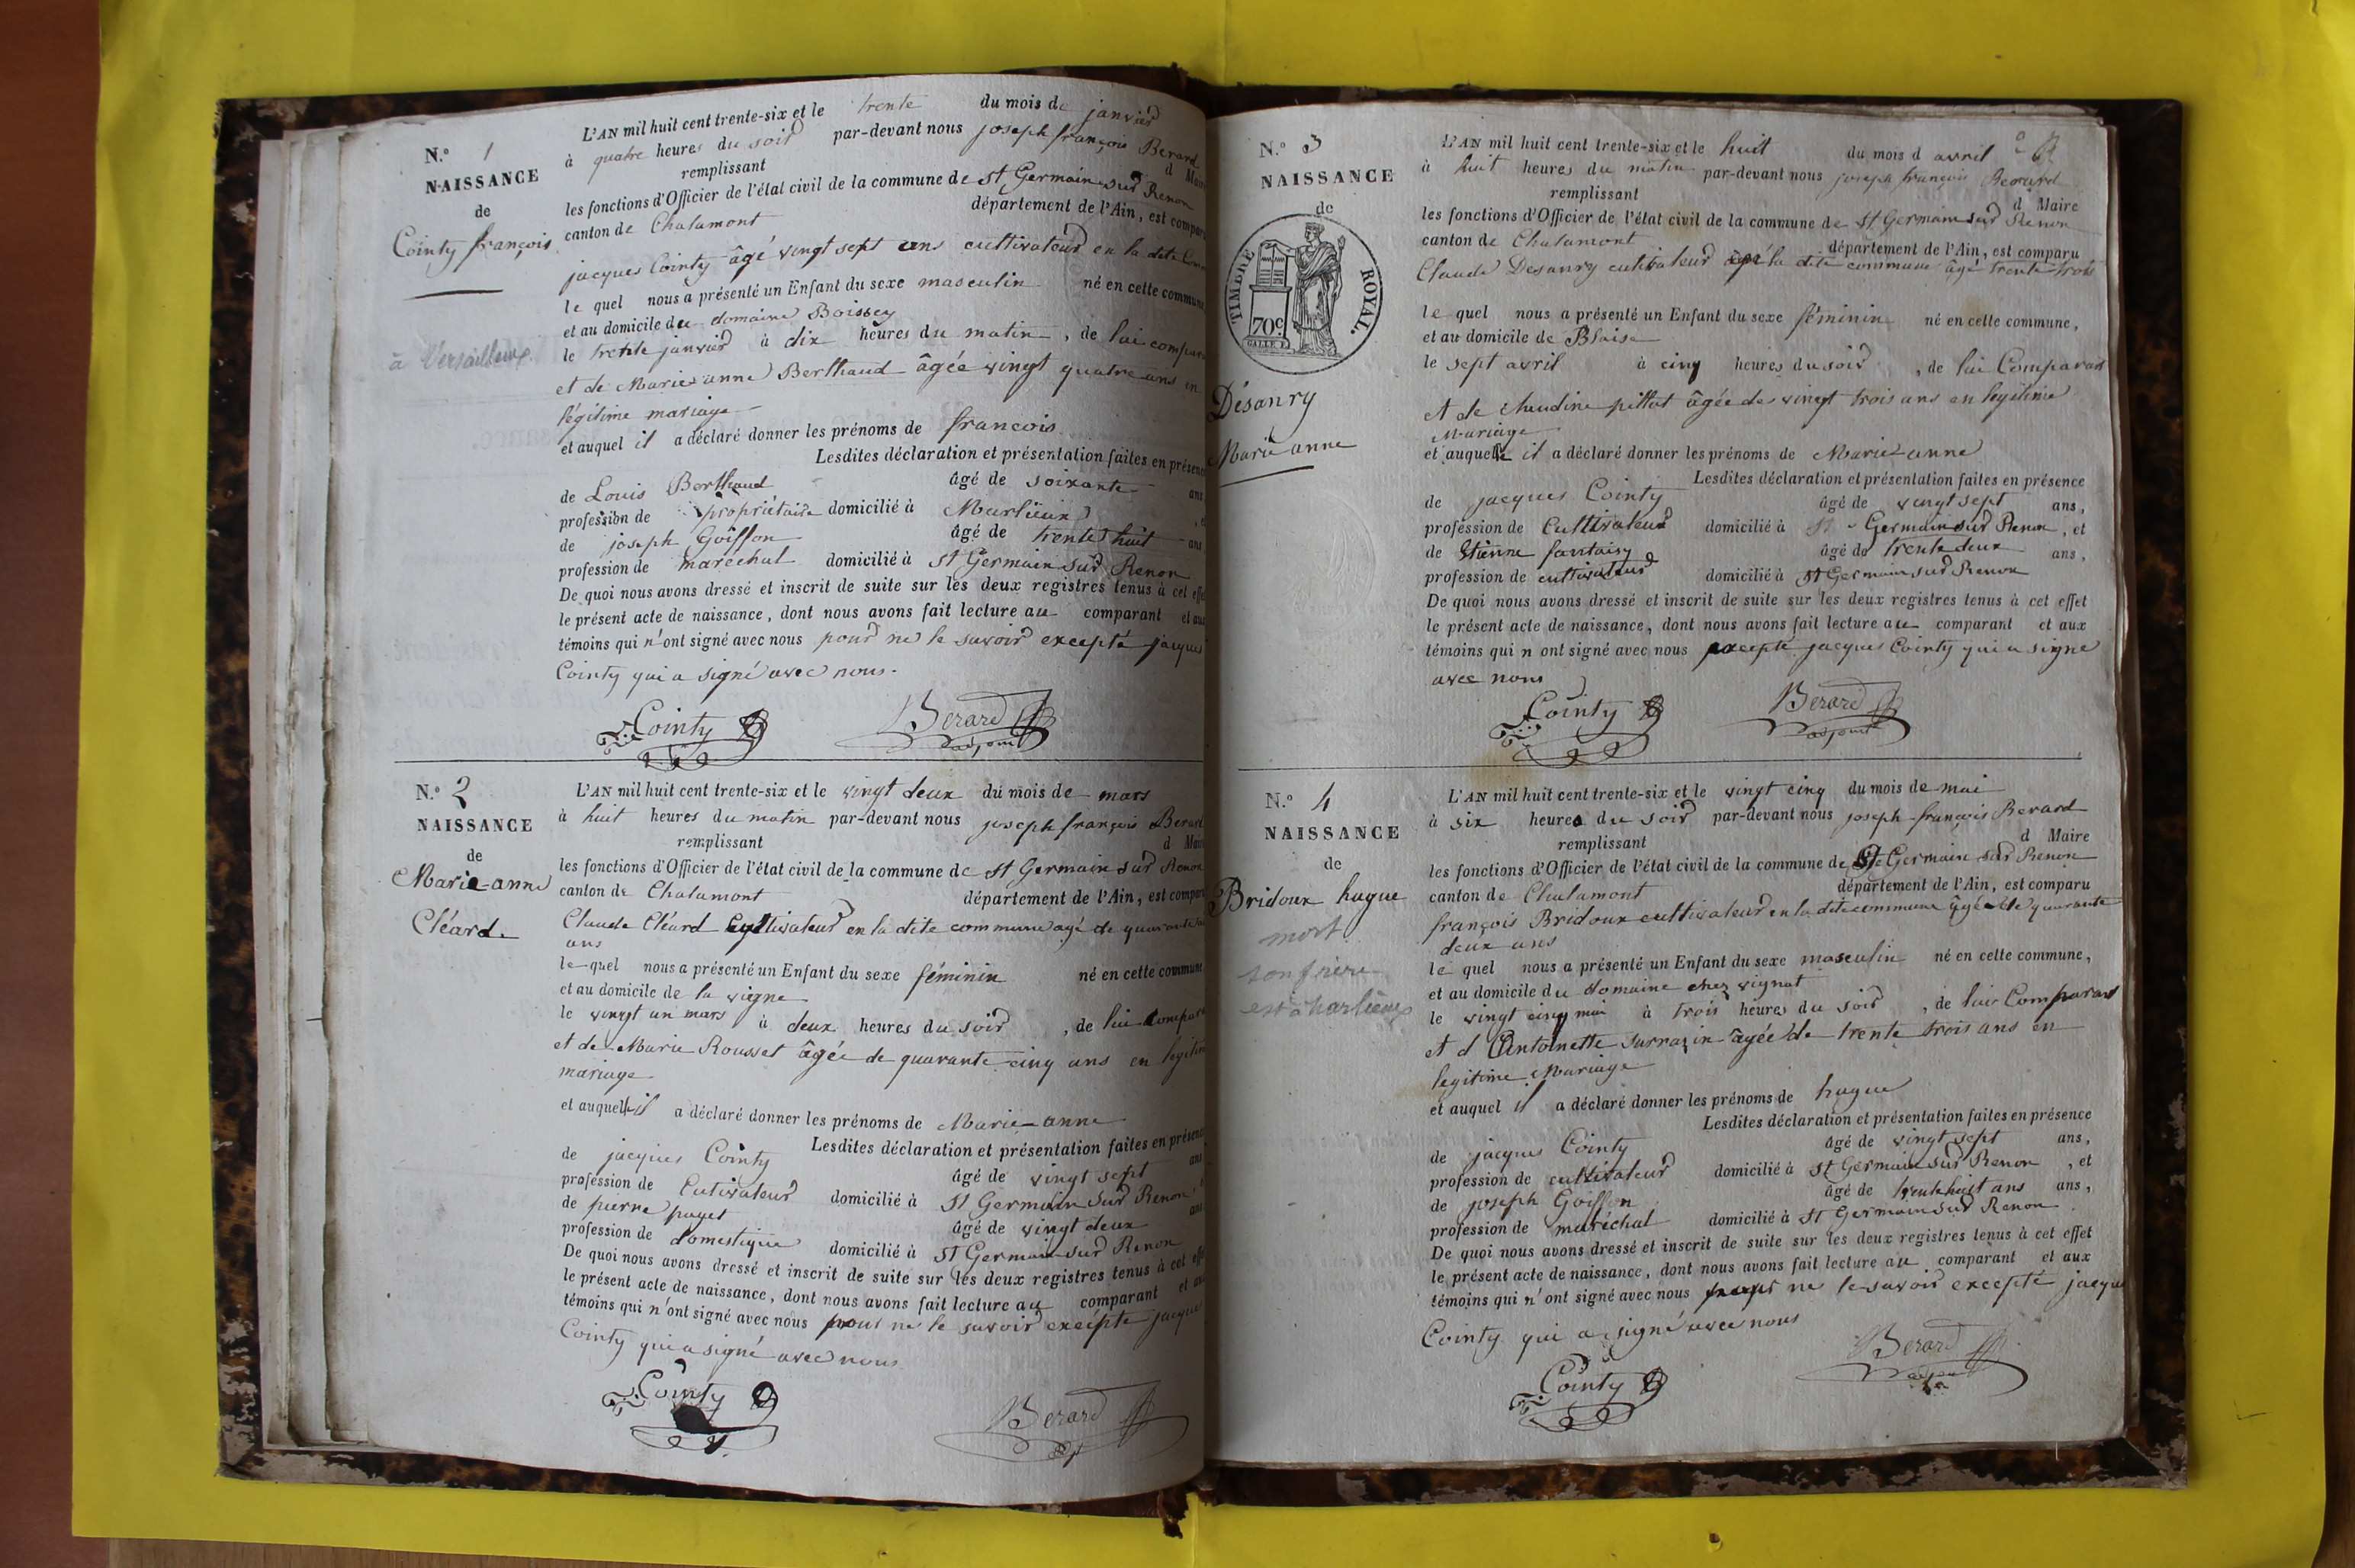 N.º 1
NAISSANCE
de
Cointy françois
à Versailleux
L'AN mil huit cent trente-six et le trente du mois de janvier
à quatre heures du soir par-devant nous joseph françois Berard
remplissant d Maire
les fonctions d'Officier de l'état civil de la commune de St Germain sur Renon
canton de Chalamont département de l'Ain, est comparu
jacques Cointy âgé vingt sept ans cultivateur en la dite
le quel nous a présenté un Enfant du sexe masculin né en cette commune
et au domicile du domaine Boissey
le trente janvier à dix heures du matin, de lui
et de Marie anne Berthaud âgée vingt quatre ans en
légitime mariage
et auquel il a déclaré donner les prénoms de françois
Lesdites déclaration et présentation faites en présence
de Louis Berthaud âgé de soixante ans
profession de propriétaire domicilié à Marlieux
de joseph Goiffon âgé de trente huit ans
profession de maréchal domicilié à St Germain sur Renon
De quoi nous avons dressé et inscrit de suite sur les deux registres tenus à cet effe
le présent acte de naissance, dont nous avons fait lecture au comparant et aux
témoins qui n'ont signé avec nous pour ne le savoir excepté jacques
Cointy qui a signé avec nous.
Cointy Berard
adjoint
N.º 2
NAISSANCE
de
Marie anne
Cléard
L'AN mil huit cent trente-six et le vingt deux du mois de mars
à huit heures du matin par-devant nous joseph françois Berard
remplissant d Maire
les fonctions d'Officier de l'état civil de la commune de St Germain sur Renon
canton de Chalamont département de l'Ain, est compar
Claude Cléard Cultivateur en la dite commune agé de quarante
ans
le quel nous a présenté un Enfant du sexe féminin né en cette commune
et au domicile de la vigne
le vingt un mars à deux heures du soir, de lui
et de Marie Rousset âgée de quarante cinq ans en
mariage
et auquelle il a déclaré donner les prénoms de Marie anne
Lesdites déclaration et présentation faites en présence
de jacques Cointy âgé de vingt sept ans
profession de Cutivateur domicilié à St Germain sur Renon
de pierre puget âgé de vingt deux ans
profession de domestique domicilié à St Germain sur Renon
De quoi nous avons dressé et inscrit de suite sur les deux registres tenus à cet effe
le présent acte de naissance, dont nous avons fait lecture au comparant et aux
témoins qui n'ont signé avec nous pour ne le savoir excépte jacques
Cointy qui a signé avec nous
Cointy Berard
N.º 3
NAISSANCE
de
TIMBRE ROYAL.
70c
Désanry
Marie anne
L'AN mil huit cent trente-six et le huit du mois d avril
à huit heures du matin par-devant nous joseph françois Berard
remplissant d Maire
les fonctions d'Officier de l'état civil de la commune de St Germain sur Renon
canton de Chalamont département de l'Ain, est comparu
Claude Desanry cultivateur la dite commune âgé trente trois
le quel nous a présenté un Enfant du sexe féminin né en cette commune,
et au domicile de Blaise
le sept avril à cinq heures du soir, de lui Comparant
et de claudine pittut âgée de vingt trois ans en legitime
Mariage
et auquelle il a déclaré donner les prénoms de Marie anne
Lesdites déclaration et présentation faites en présence
de jacques Cointy âgé de vingt sept ans,
profession de Cultivateur domicilié à St Germain sur Renon, et
de Etienne fontaisy âgé de trente deux ans,
profession de cultivateur domicilié à St Germain sur Renon
De quoi nous avons dressé et inscrit de suite sur les deux registres tenus à cet effet
le présent acte de naissance, dont nous avons fait lecture au comparant et aux
témoins qui n ont signé avec nous excepte jacques Cointy qui a signé
avec nous
Cointy Berard
adjoint
N.º 4
NAISSANCE
de
Bridoux hugue
mort
son frère
est à Marlieux
L'AN mil huit cent trente-six et le vingt cinq du mois de mai
à six heures du soir par-devant nous joseph-françois Berard
remplissant d Maire
les fonctions d'Officier de l'état civil de la commune de St Germain sur Renon
canton de Chalamont département de l'Ain, est comparu
françois Bridoux cultivateur en la dite commune âgé de quarante
deux ans
le quel nous a présenté un Enfant du sexe masculin né en cette commune,
et au domicile du domaine chez vignat
le vingt cinq mai à trois heures du soir, de lui Comparant
et d Antoinette Surrazin âgée de trente trois ans en
legitime Mariage
et auquel il a déclaré donner les prénoms de hugue
Lesdites déclaration et présentation faites en présence
de jacques Cointy âgé de vingt sept ans,
profession de cultivateur domicilié à St Germain sur Renon, et
de joseph Goiffon âgé de trente huit ans ans,
profession de maréchal domicilié à St Germain sur Renon
De quoi nous avons dressé et inscrit de suite sur les deux registres tenus à cet effet
le présent acte de naissance, dont nous avons fait lecture au comparant et aux
témoins qui n'ont signé avec nous ne le savoir excepté jacque
Cointy qui a signé avec nous
Cointy Berard
adjoint